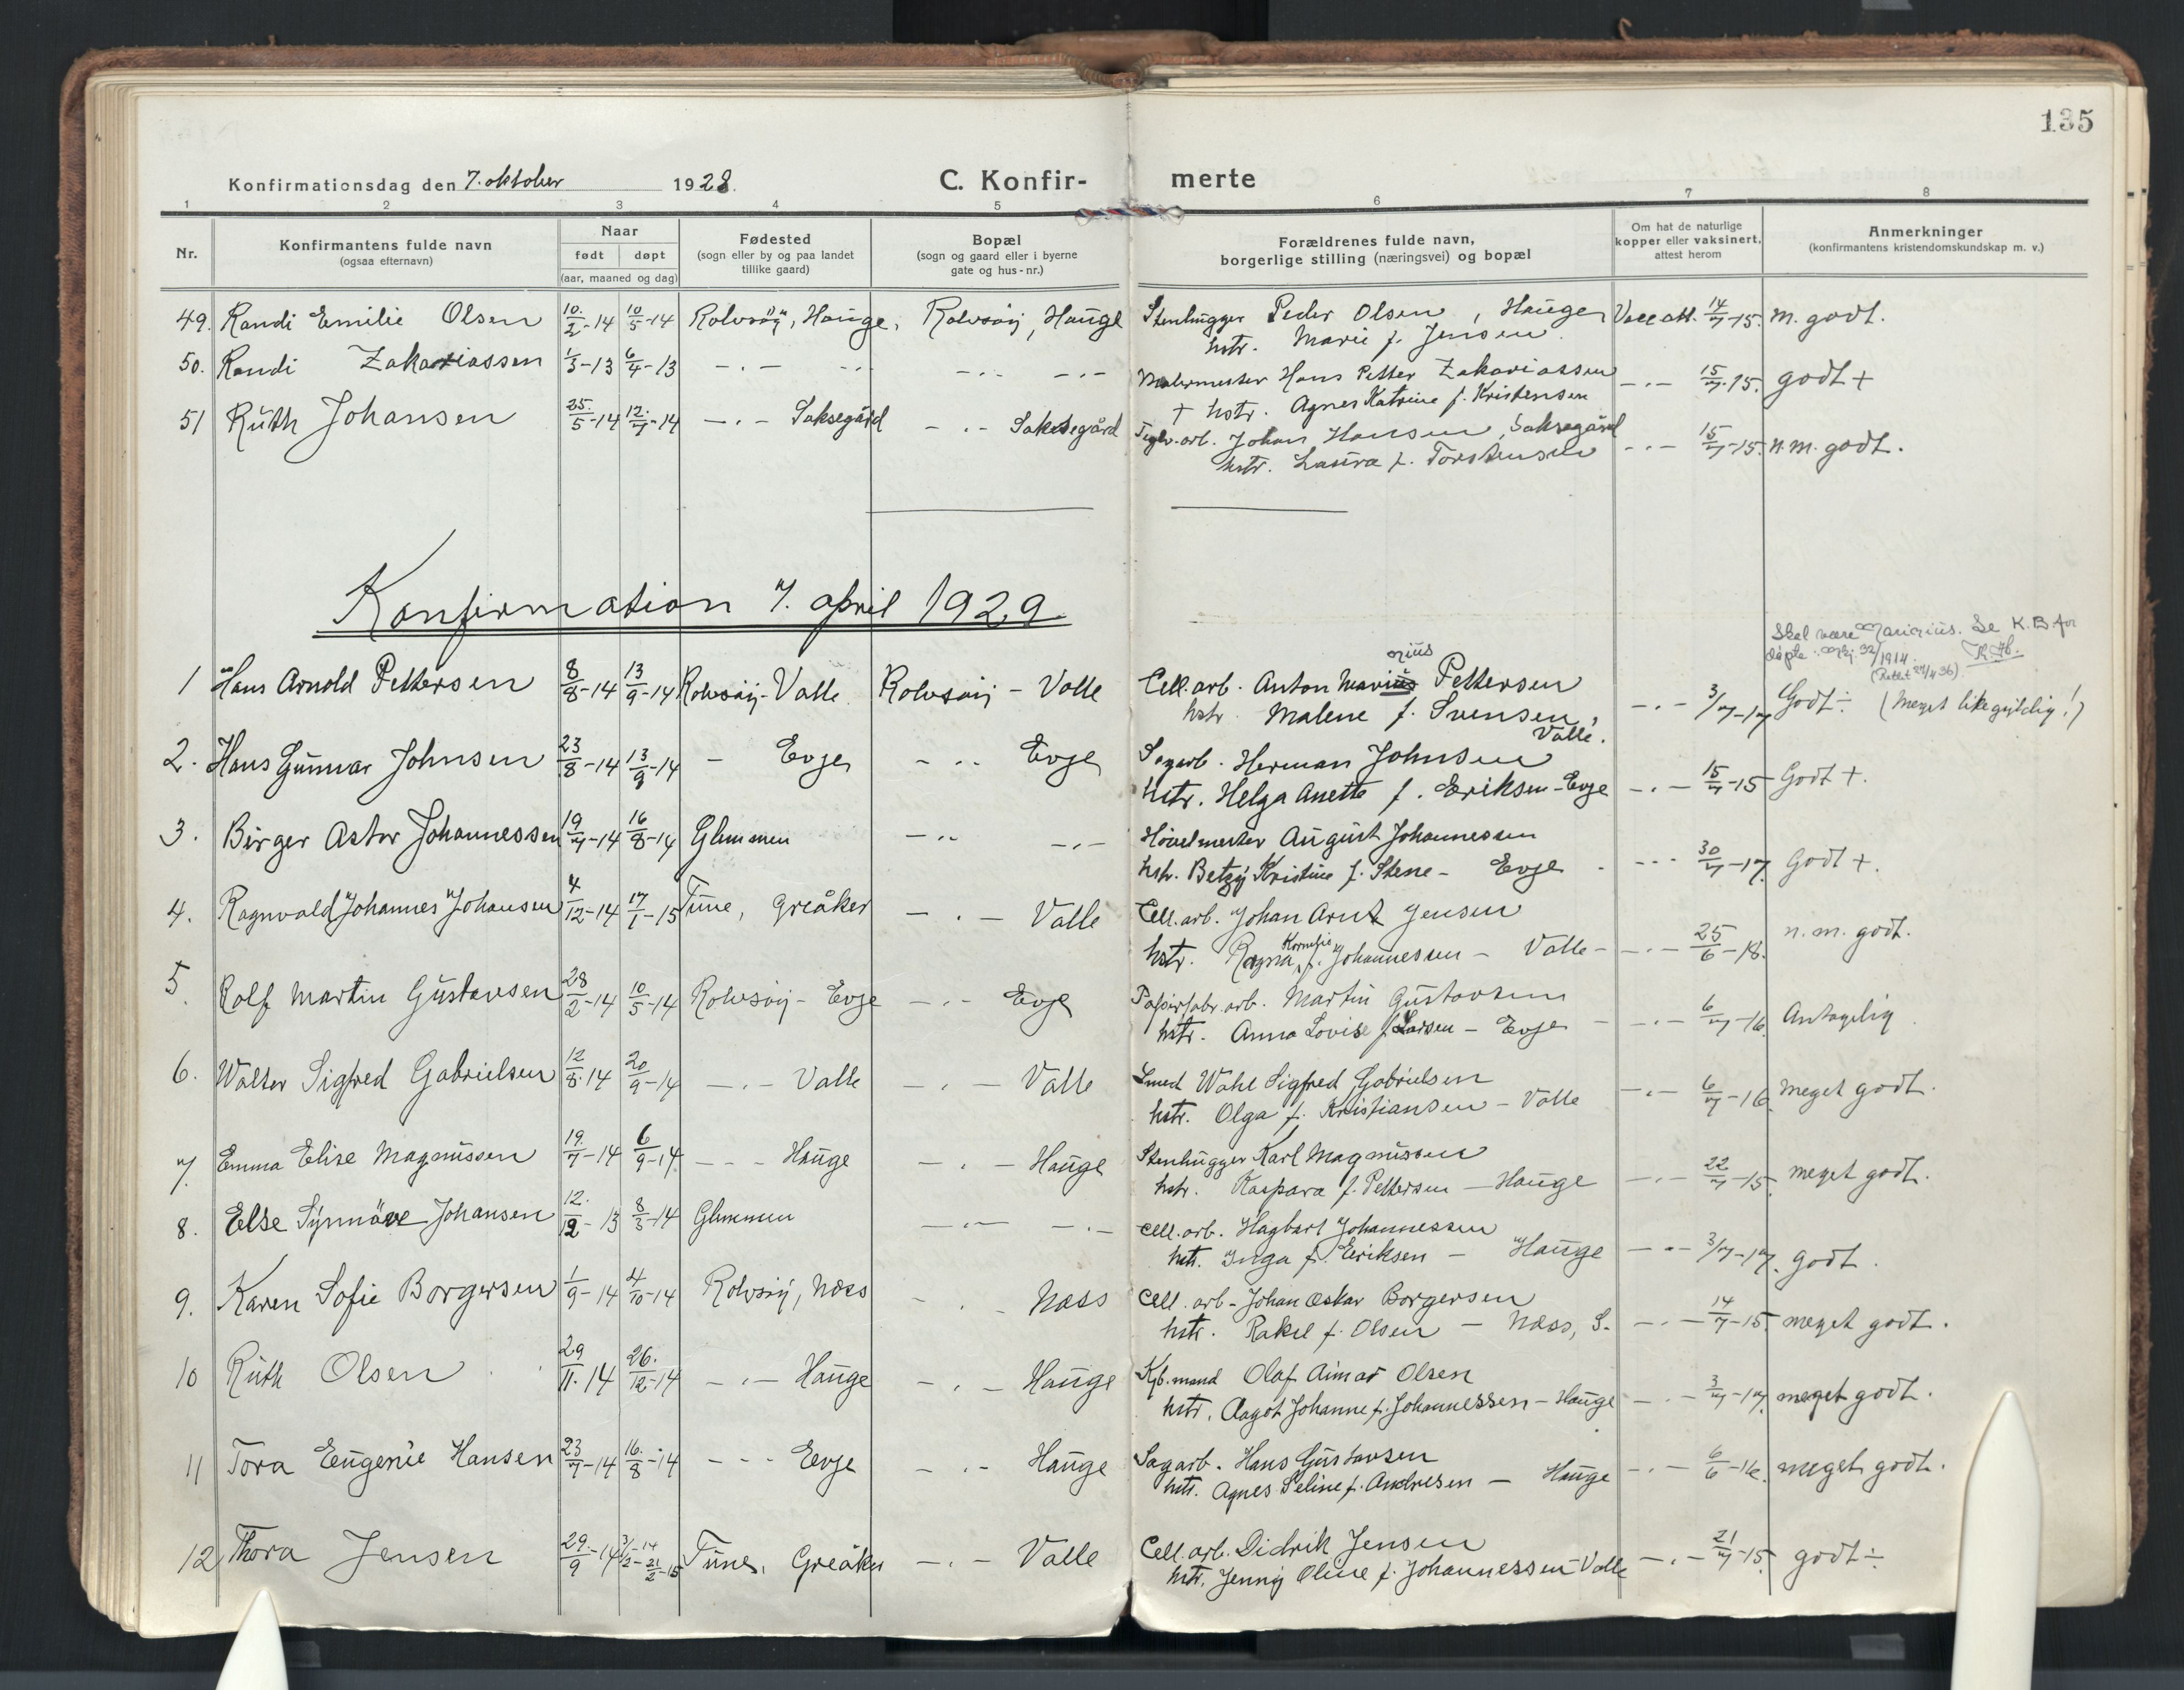 135
Konfirmationsdag den 7. oktober 1928. C. Konfir- merte
1 2 3 4 5 6 7 8
Nr. Konfirmantens fulde navn (ogsaa efternavn) Naar født døpt (aar, maaned og dag) Fødested (sogn eller by og paa landet tillike gaard) Bopæl (sogn og gaard eller i byerne gate og hus-nr.) Forældrenes fulde navn, borgerlige stilling (næringsvei) og bopæl Om hat de naturlige kopper eller vaksinert, attest herom Anmerkninger (konfirmantens kristendomskundskap m. v.)
49. Randi Emilie Olsen 10/2-14 10/5-14 Rolvsøy, Hauge, Rolvsøy, Hauge Stenhugger Peder Olsen, Hauge Vacc att. 14/7-15. m. godt.
hstr. Marie f. Jensen
50. Randi Zakariassen 1/3-13 6/4-13 -.- -.- -.- -.- Malermester Hans Petter Zakariassen -.- 15/7-15. godt +
+ hstr. Agnes Katrine f. Kristensen
51 Ruth Johansen 25/5-14 12/7-14 -.- Saksegård -.- Saksegård Teglv.arb. Johan Hansen, Saksegård -.- 15/7-15. n.m. godt.
hstr. Laura f. Torstensen
Konfirmation 7. april 1929.
Skal være Mauritius. Se K.B. for
døpte 32/1914.
(Rettet 27/4 36)
1 Hans Arnold Pettersen 8/8-14 13/9-14 Rolvsøy-Valle Rolvsøy - Valle Cell.arb. Anton Marius Pettersen -.- 3/7-17 Godt ÷ (Meget likegyldig!)
hstr. Malene f. Svensen, Valle.
2. Hans Gunnar Johnsen 23/8-14 13/9-14 - Evje -.- Evje Sagarb. Herman Johnsen
hstr. Helga Anette f. Eriksen-Evje -.- 15/7-15 Godt +.
3. Birger Astor Johannessen 19/7-14 16/8-14 Glemmen -.- -.- Høvelmester August Johannessen
hstr. Betzy Kristine f. Stene - Evje -.- 30/7-17 Godt +.
4. Ragnvald Johannes Johansen 4/12-14 17/1-15 Tune, Greåker -.- Valle Cell.arb. Johan Arnt Jensen
hstr. Ragna Kornelie f. Johannessen - Valle - -.- 25/6-18. n.m. godt.
5. Rolf Martin Gustavsen 28/2-14 10/5-14 Rolvsøy - Evje -.- Evje Papirfabr.arb. Martin Gustavsen
hstr. Anna Lovise f. Larsen - Evje - -.- 6/7-16 Antagelig
6. Walter Sigfred Gabrielsen 12/8-14 20/9-14 -.- Valle -.- Valle Smed Wahl Sigfred Gabrielsen
hstr. Olga f. Kristiansen - Valle -.- 6/7-16. Meget godt.
7. Emma Elise Magnussen 19/7-14 6/9-14 -.- Hauge -.- Hauge Stenhugger Karl Magnussen
hstr. Kaspara f. Pettersen - Hauge -.- 22/7-15. meget godt.
8. Else Synnöve Johansen 12/12-13 8/3-14 Glemmen -.- -.- Cell.arb. Hagbart Johannessen
hstr. Inga f. Eriksen - Hauge -.- 3/7-17. godt.
9. Karen Sofie Borgersen 1/9-14 4/10-14 Rolvsøy, Næss -.- Næss Cell.arb. Johan Oskar Borgersen
hstr. Rakel f. Olsen - Næss, S. -.- 14/7-15. meget godt.
10 Ruth Olsen 29/11-14 26/12-14 -.- Hauge -.- Hauge Kjb.mand Olaf Aimar Olsen
hstr. Aagot Johanne f. Johannessen - Hauge -.- 3/7-17 meget godt.
11 Tora Eugenie Hansen 23/7-14 16/8-14 -.- Evje -.- Hauge Sagarb. Hans Gustavsen
hstr. Agnes Seline f. Andresen - Hauge -.- 6/6-16. meget godt.
12 Thora Jensen 29/9-14 3/12-14 21/2-15 Tune, Greåker -.- Valle Cell.arb. Didrik Jensen
hstr. Jenny Oline f. Johannessen-Valle -.- 21/7-15 godt ÷